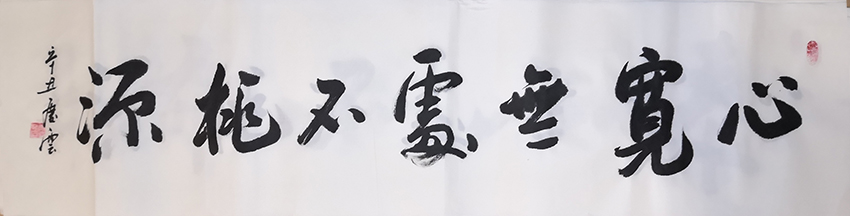 心寬無處不桃源
辛丑 雲